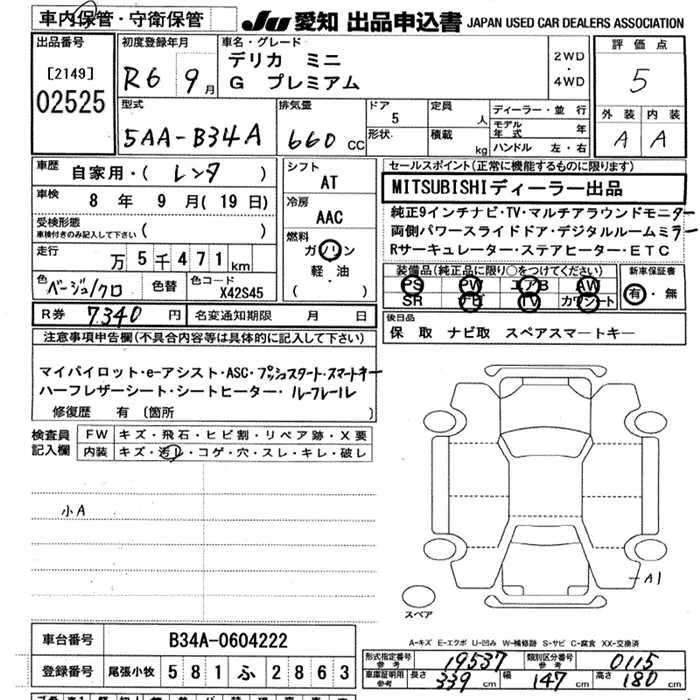 車内保管・守衛保管
JU 愛知 出品申込書 JAPAN USED CAR DEALERS ASSOCIATION
出品番号
[2149]
02525
初度登録年月
R6 9月
車名・グレード
デリカ ミニ
G プレミアム
2WD
・
4WD
評価点
5
外装 内装
A A
型式
5AA-B34A
排気量
660 CC
ドア
5
形状
定員
人
積載
kg
ディーラー・並行
モデル年式 年
ハンドル 左・右
車歴
自家用・( レンタ )
車検
8 年 9 月 ( 19 日)
受検形態
車検付きのみ記入して下さい ( )
走行
万 5 千 4 7 1 km
色
ベージュ/クロ
色替
色コード
X42S45
シフト
AT
冷房
AAC
燃料
ガソリン
軽油
( )
R券 7340 円
名変通知期限 月 日
セールスポイント(正常に機能するものに限ります)
MITSUBISHIディーラー出品
純正9インチナビ・TV・マルチアラウンドモニター
両側パワースライドドア・デジタルルームミラー
Rサーキュレーター・ステアヒーター・ETC
装備品(純正品に限り○をつけてください)
PS PW エアB AW
SR ナビ TV カワシート
新車保証書
有・無
後日品
保 取 ナビ取 スペアスマートキー
注意事項申告欄(不具合内容等は具体的に記入して下さい)
マイパイロット・e-アシスト・ASC・プッシュスタート・スマートキー
ハーフレザーシート・シートヒーター・ルーフレール
修復歴 有 〔箇所 〕
検査員記入欄
FW キズ・飛石・ヒビ割・リペア跡・X要
内装 キズ・汚レ・コゲ・穴・スレ・キレ・破レ
小A
A1
スペア
A-キズ E-エクボ U-凹み W-補修跡 S-サビ C-腐食 XX-交換済
車台番号 B34A-0604222
登録番号 尾張小牧 5 8 1 ふ 2 8 6 3
形式指定番号 参考 19537
類別区分番号 参考 0115
車庫証明用 参考 長さ 339 cm 幅 147 cm 高さ 180 cm